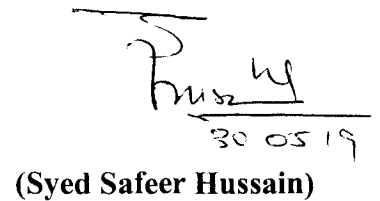 30 05 19
(Syed Safeer Hussain)